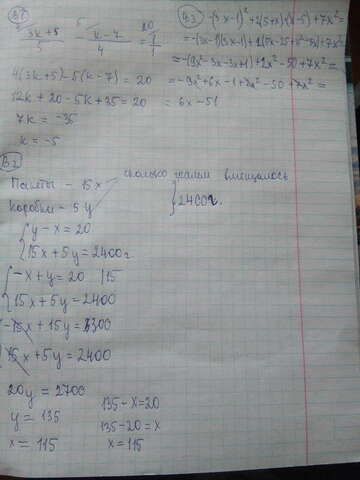 В1
(3k+5)/5 - (k-7)/4 = 1/1
4(3k+5)-5(k-7)=20
12k+20-5k+35=20
7k=-35
k=-5
В3 -(3x-1)²+2(5+x)(x-5)+7x²=
=-(3x-1)(3x-1)+2(5x-25+x²-5x)+7x²=
=-(9x²-3x-3x+1)+2x²-50+7x²=
=-9x²+6x-1+2x²-50+7x²=
=6x-51
В2
Пакеты - 15x
Коробки - 5y
сколько грамм вмещалось
2400г.
{y-x=20
15x+5y=2400г
{-x+y=20 |15
15x+5y=2400
-15x+15y=300
15x+5y=2400
20y=2700
y=135
x=115
135-x=20
135-20=x
x=115